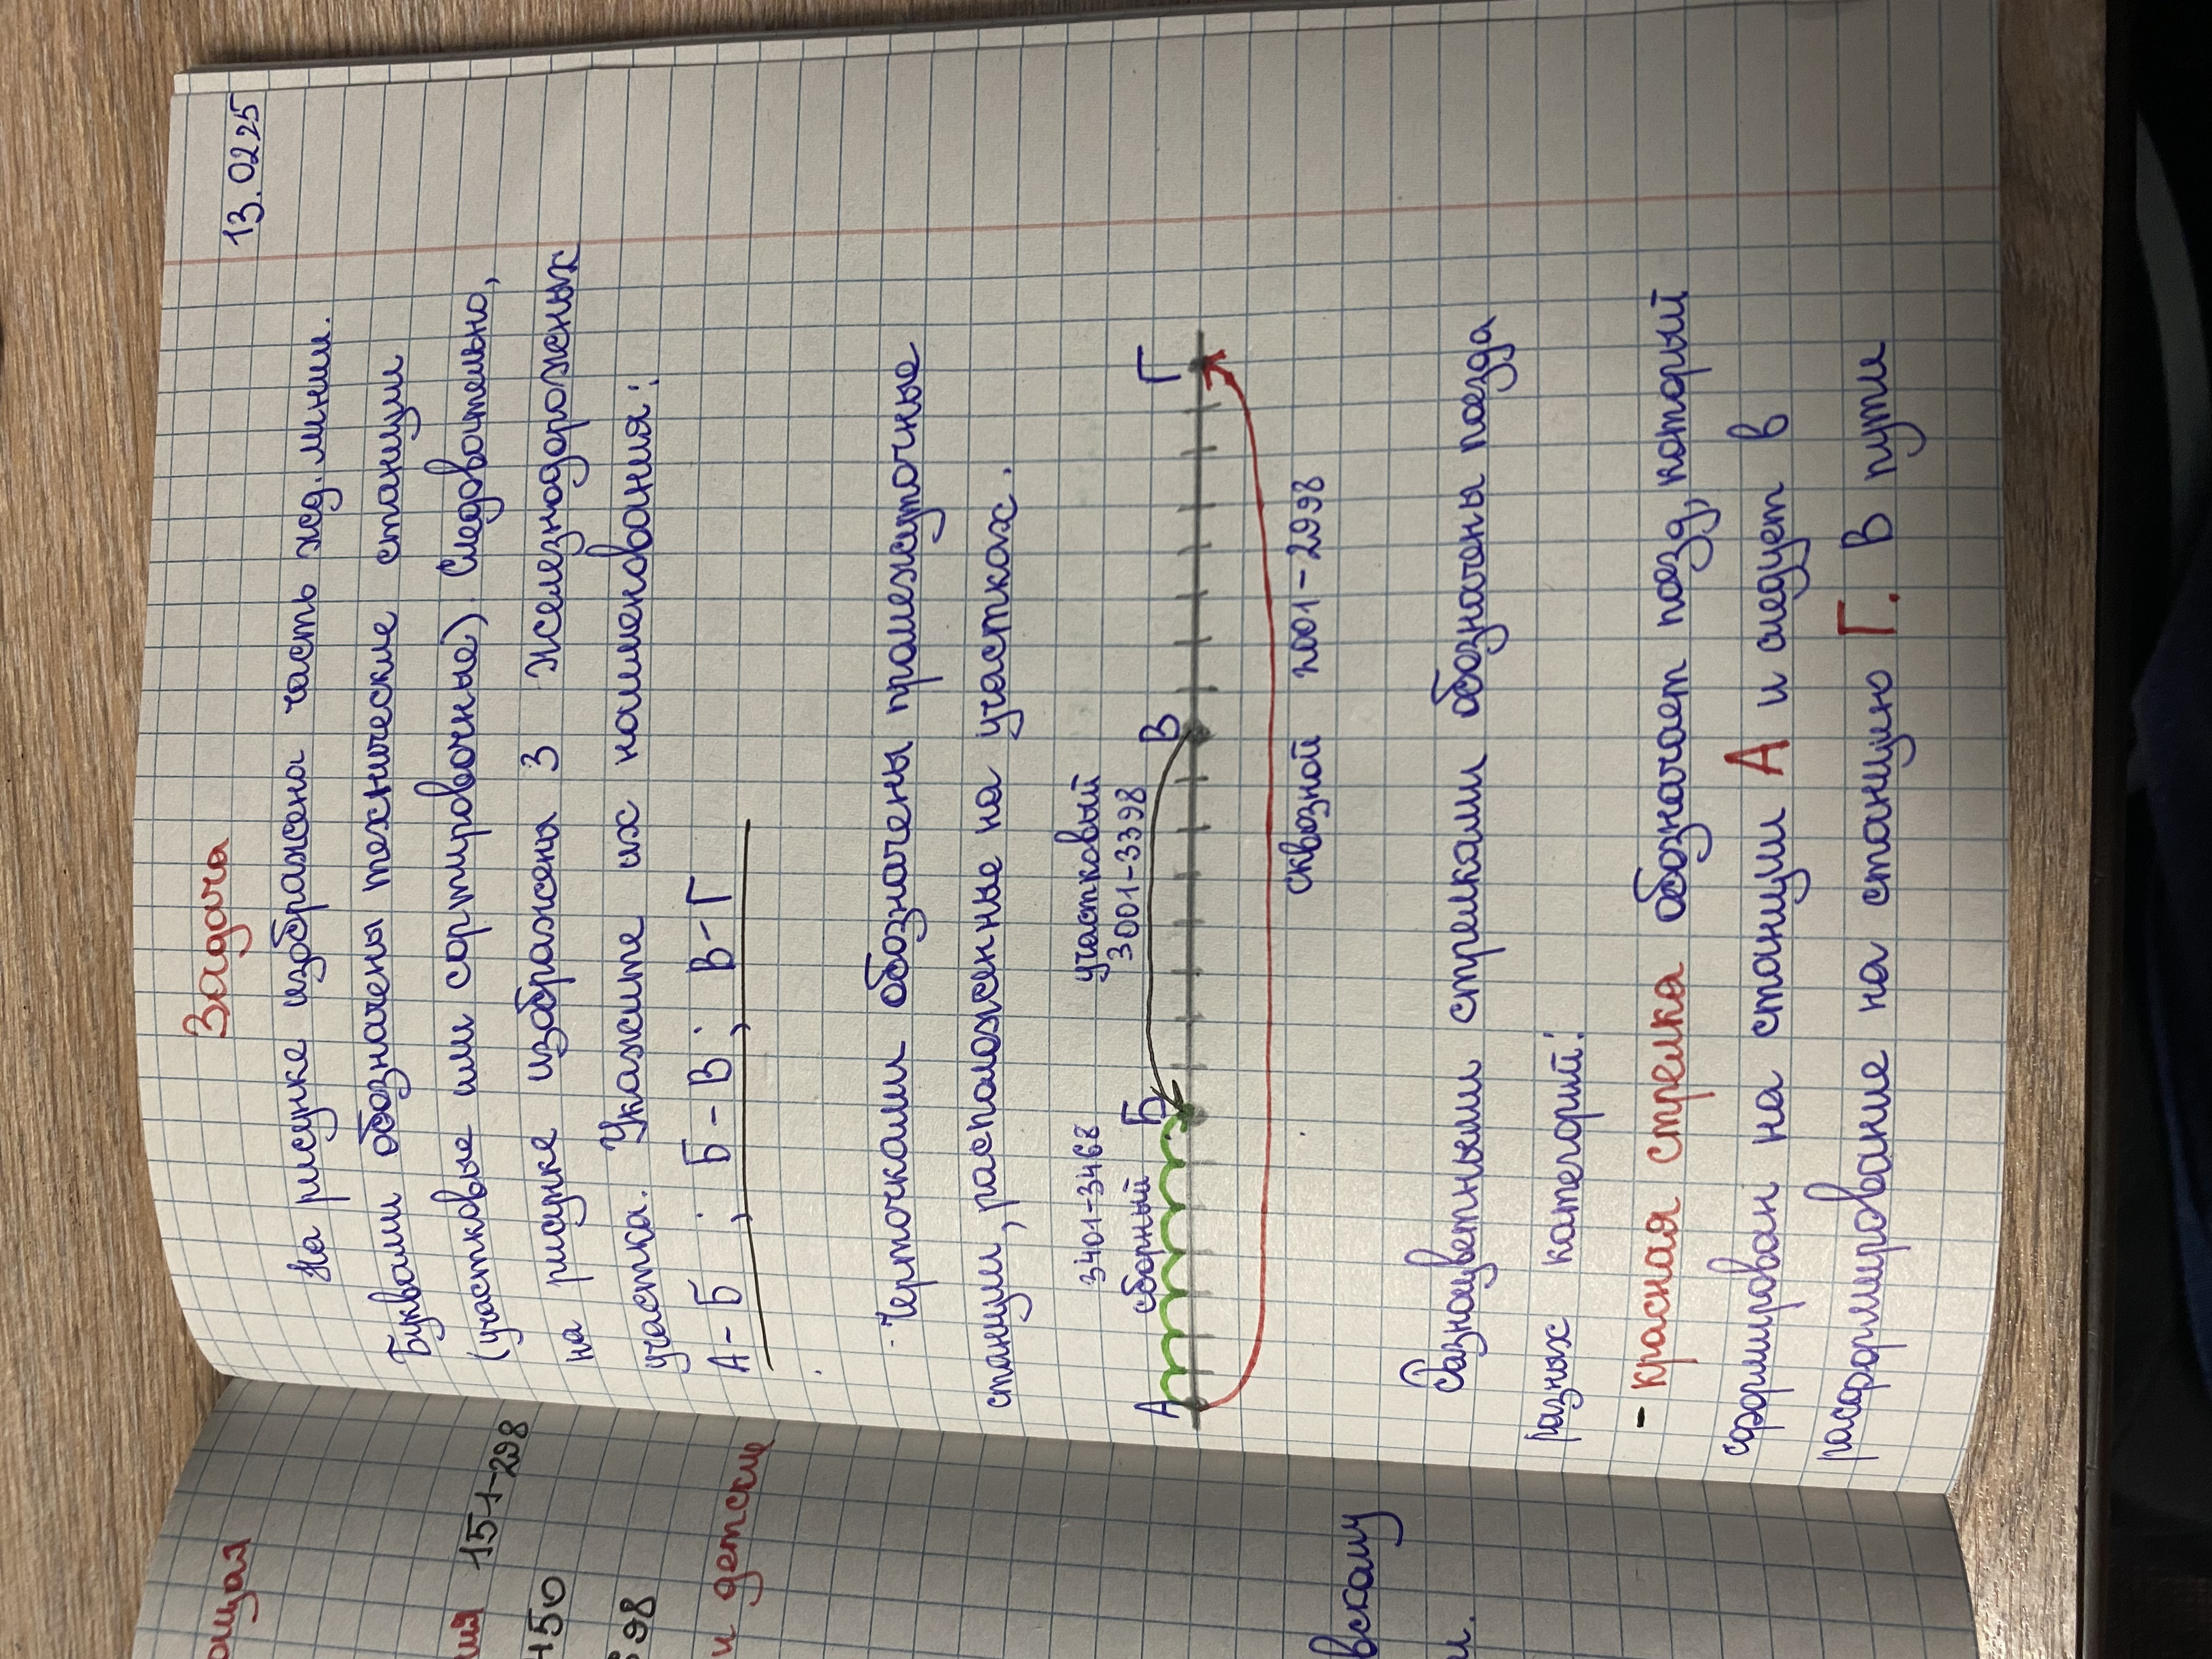 13.0225
Задача
На рисунке изображена часть жд. линии.
Буквами обозначены технические станции
(участковые или сортировочные). Следовательно,
на рисунке изображены 3 железнодорожных
участка. Укажите их наименования:
А-Б; Б-В; В-Г
Черточками обозначены промежуточные
станции, расположенные на участках.
3401-3468
сборный
участковый
3001-3398
А Б В Г
сквозной 2001-2998
Разноцветными стрелками обозначены поезда
разных категорий:
- красная стрелка обозначает поезд, который
сформирован на станции А и следует в
расформирование на станцию Г. В пути
ющая
151-298
450
98
и детские
вскому